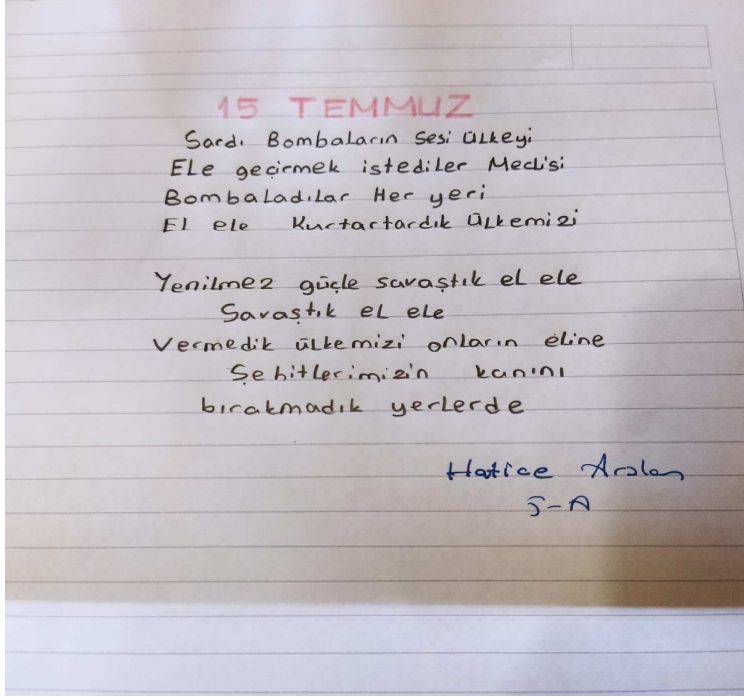 15 TEMMUZ
Sardı Bombaların Sesi ülkeyi
Ele geçirmek istediler Meclisi
Bombaladılar Her yeri
El ele Kurtartardık Ülkemizi
Yenilmez güçle savaştık el ele
Savaştık el ele
Vermedik ülkemizi onların eline
Şehitlerimizin kanını
bırakmadık yerlerde
Hatice Arslan
5-A